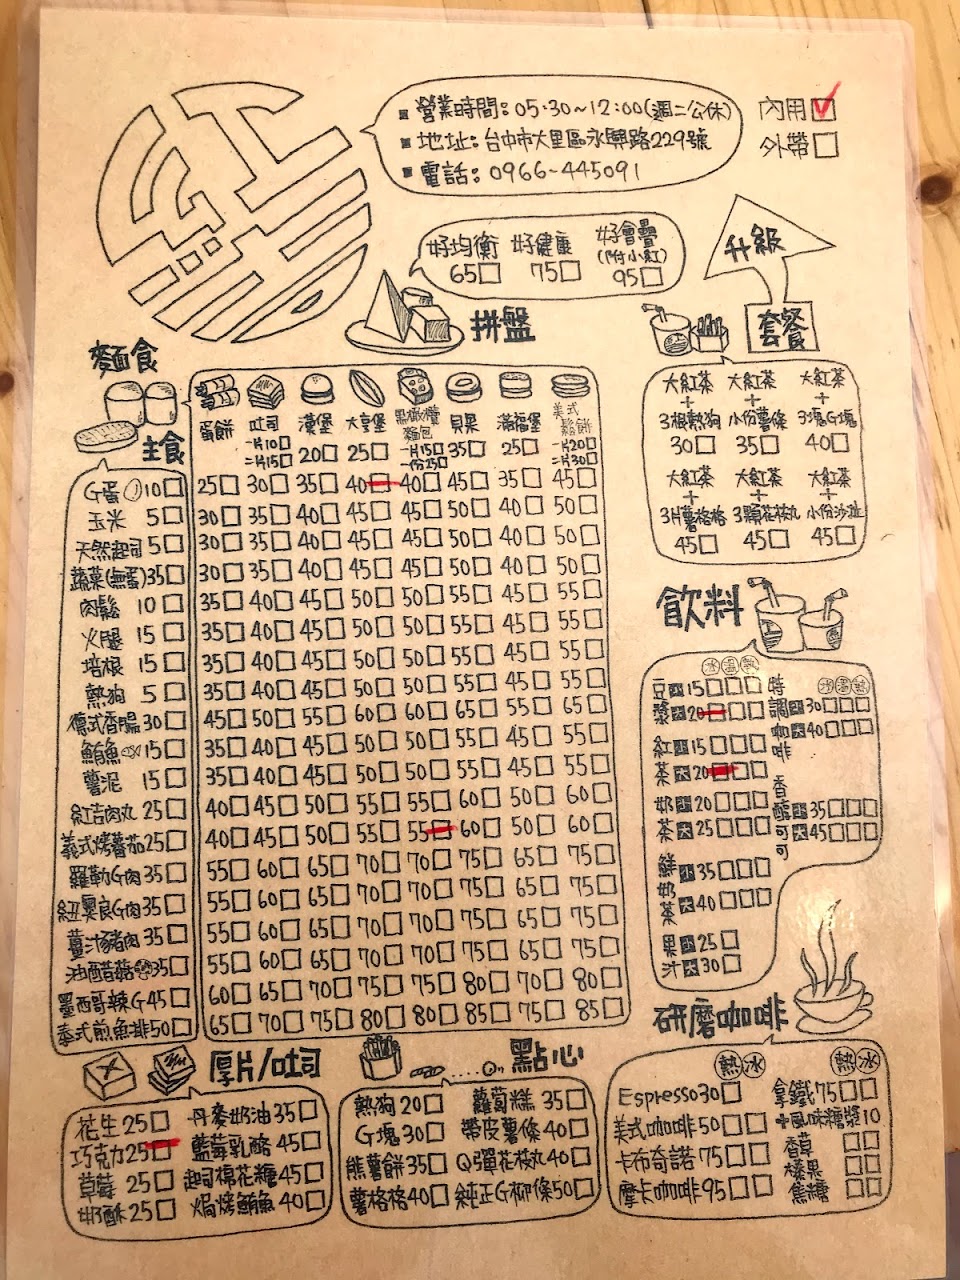 營業時間:05:30~12:00(週二公休)
地址:台中市大里區永興路229號
電話:0966-445091
內用☑
外帶□
好均衡 好健康 好會疊(附小紅)
65□ 75□ 95□
拼盤
升級
套餐
大紅茶 大紅茶 大紅茶
+ + +
3根熱狗 小份薯條 3塊G塊
30□ 35□ 40□
大紅茶 大紅茶 大紅茶
+ + +
3片薯格格 3顆花枝丸 小份沙拉
45□ 45□ 45□
麵食
主食
蛋餅 吐司 漢堡 大亨堡 黑橄欖麵包 貝果 滿福堡 美式鬆餅
一片10□ 二片15□ 20□ 25□ 一片15□ 一份25□ 35□ 25□ 一片20□ 二片30□
G蛋 10□ 25□ 30□ 35□ 40□ 40□ 45□ 35□ 45□
玉米 5□ 30□ 35□ 40□ 45□ 45□ 50□ 40□ 50□
天然起司 5□ 30□ 35□ 40□ 45□ 45□ 50□ 40□ 50□
蔬菜(無蛋)35□ 30□ 35□ 40□ 45□ 45□ 50□ 40□ 50□
肉鬆 10□ 35□ 40□ 45□ 50□ 50□ 55□ 45□ 55□
火腿 15□ 35□ 40□ 45□ 50□ 50□ 55□ 45□ 55□
培根 15□ 35□ 40□ 45□ 50□ 50□ 55□ 45□ 55□
熱狗 5□ 35□ 40□ 45□ 50□ 50□ 55□ 45□ 55□
德式香腸30□ 45□ 50□ 55□ 60□ 60□ 65□ 55□ 65□
鮪魚 15□ 35□ 40□ 45□ 50□ 50□ 55□ 45□ 55□
薯泥 15□ 35□ 40□ 45□ 50□ 50□ 55□ 45□ 55□
紅吉肉丸 25□ 40□ 45□ 50□ 55□ 55□ 60□ 50□ 60□
義式烤蕃茄25□ 40□ 45□ 50□ 55□ 55□ 60□ 50□ 60□
羅勒G肉35□ 55□ 60□ 65□ 70□ 70□ 75□ 65□ 75□
紐奧良G肉35□ 55□ 60□ 65□ 70□ 70□ 75□ 65□ 75□
薑汁豬肉35□ 55□ 60□ 65□ 70□ 70□ 75□ 65□ 75□
油醋菇35□ 55□ 60□ 65□ 70□ 70□ 75□ 65□ 75□
墨西哥辣G45□ 60□ 65□ 70□ 75□ 75□ 80□ 70□ 80□
泰式煎魚排50□ 65□ 70□ 75□ 80□ 80□ 85□ 75□ 85□
飲料
冰 溫 熱
豆漿 小15□□□
大20□□□
紅茶 小15□□□
大20□□□
奶茶 小20□□□
大25□□□
鮮奶茶 小35□□□
大40□□□
果汁 小25□
大30□
冰 溫 熱
特調咖啡 小30□□□
大40□□□
香醇可可 小35□□□
大45□□□
研磨咖啡
熱 冰
Espresso30□
美式咖啡50□□
卡布奇諾75□□
摩卡咖啡95□□
熱 冰
拿鐵75□□
+風味糖漿10
香草 □□
榛果 □□
焦糖 □□
厚片/吐司
花生25□ 丹麥奶油35□
巧克力25□ 藍莓乳酪45□
草莓25□ 起司棉花糖45□
奶酥25□ 焗烤鮪魚40□
點心
熱狗20□ 蘿蔔糕35□
G塊30□ 帶皮薯條40□
熊薯餅35□ Q彈花枝丸40□
薯格格40□ 純正G柳條50□